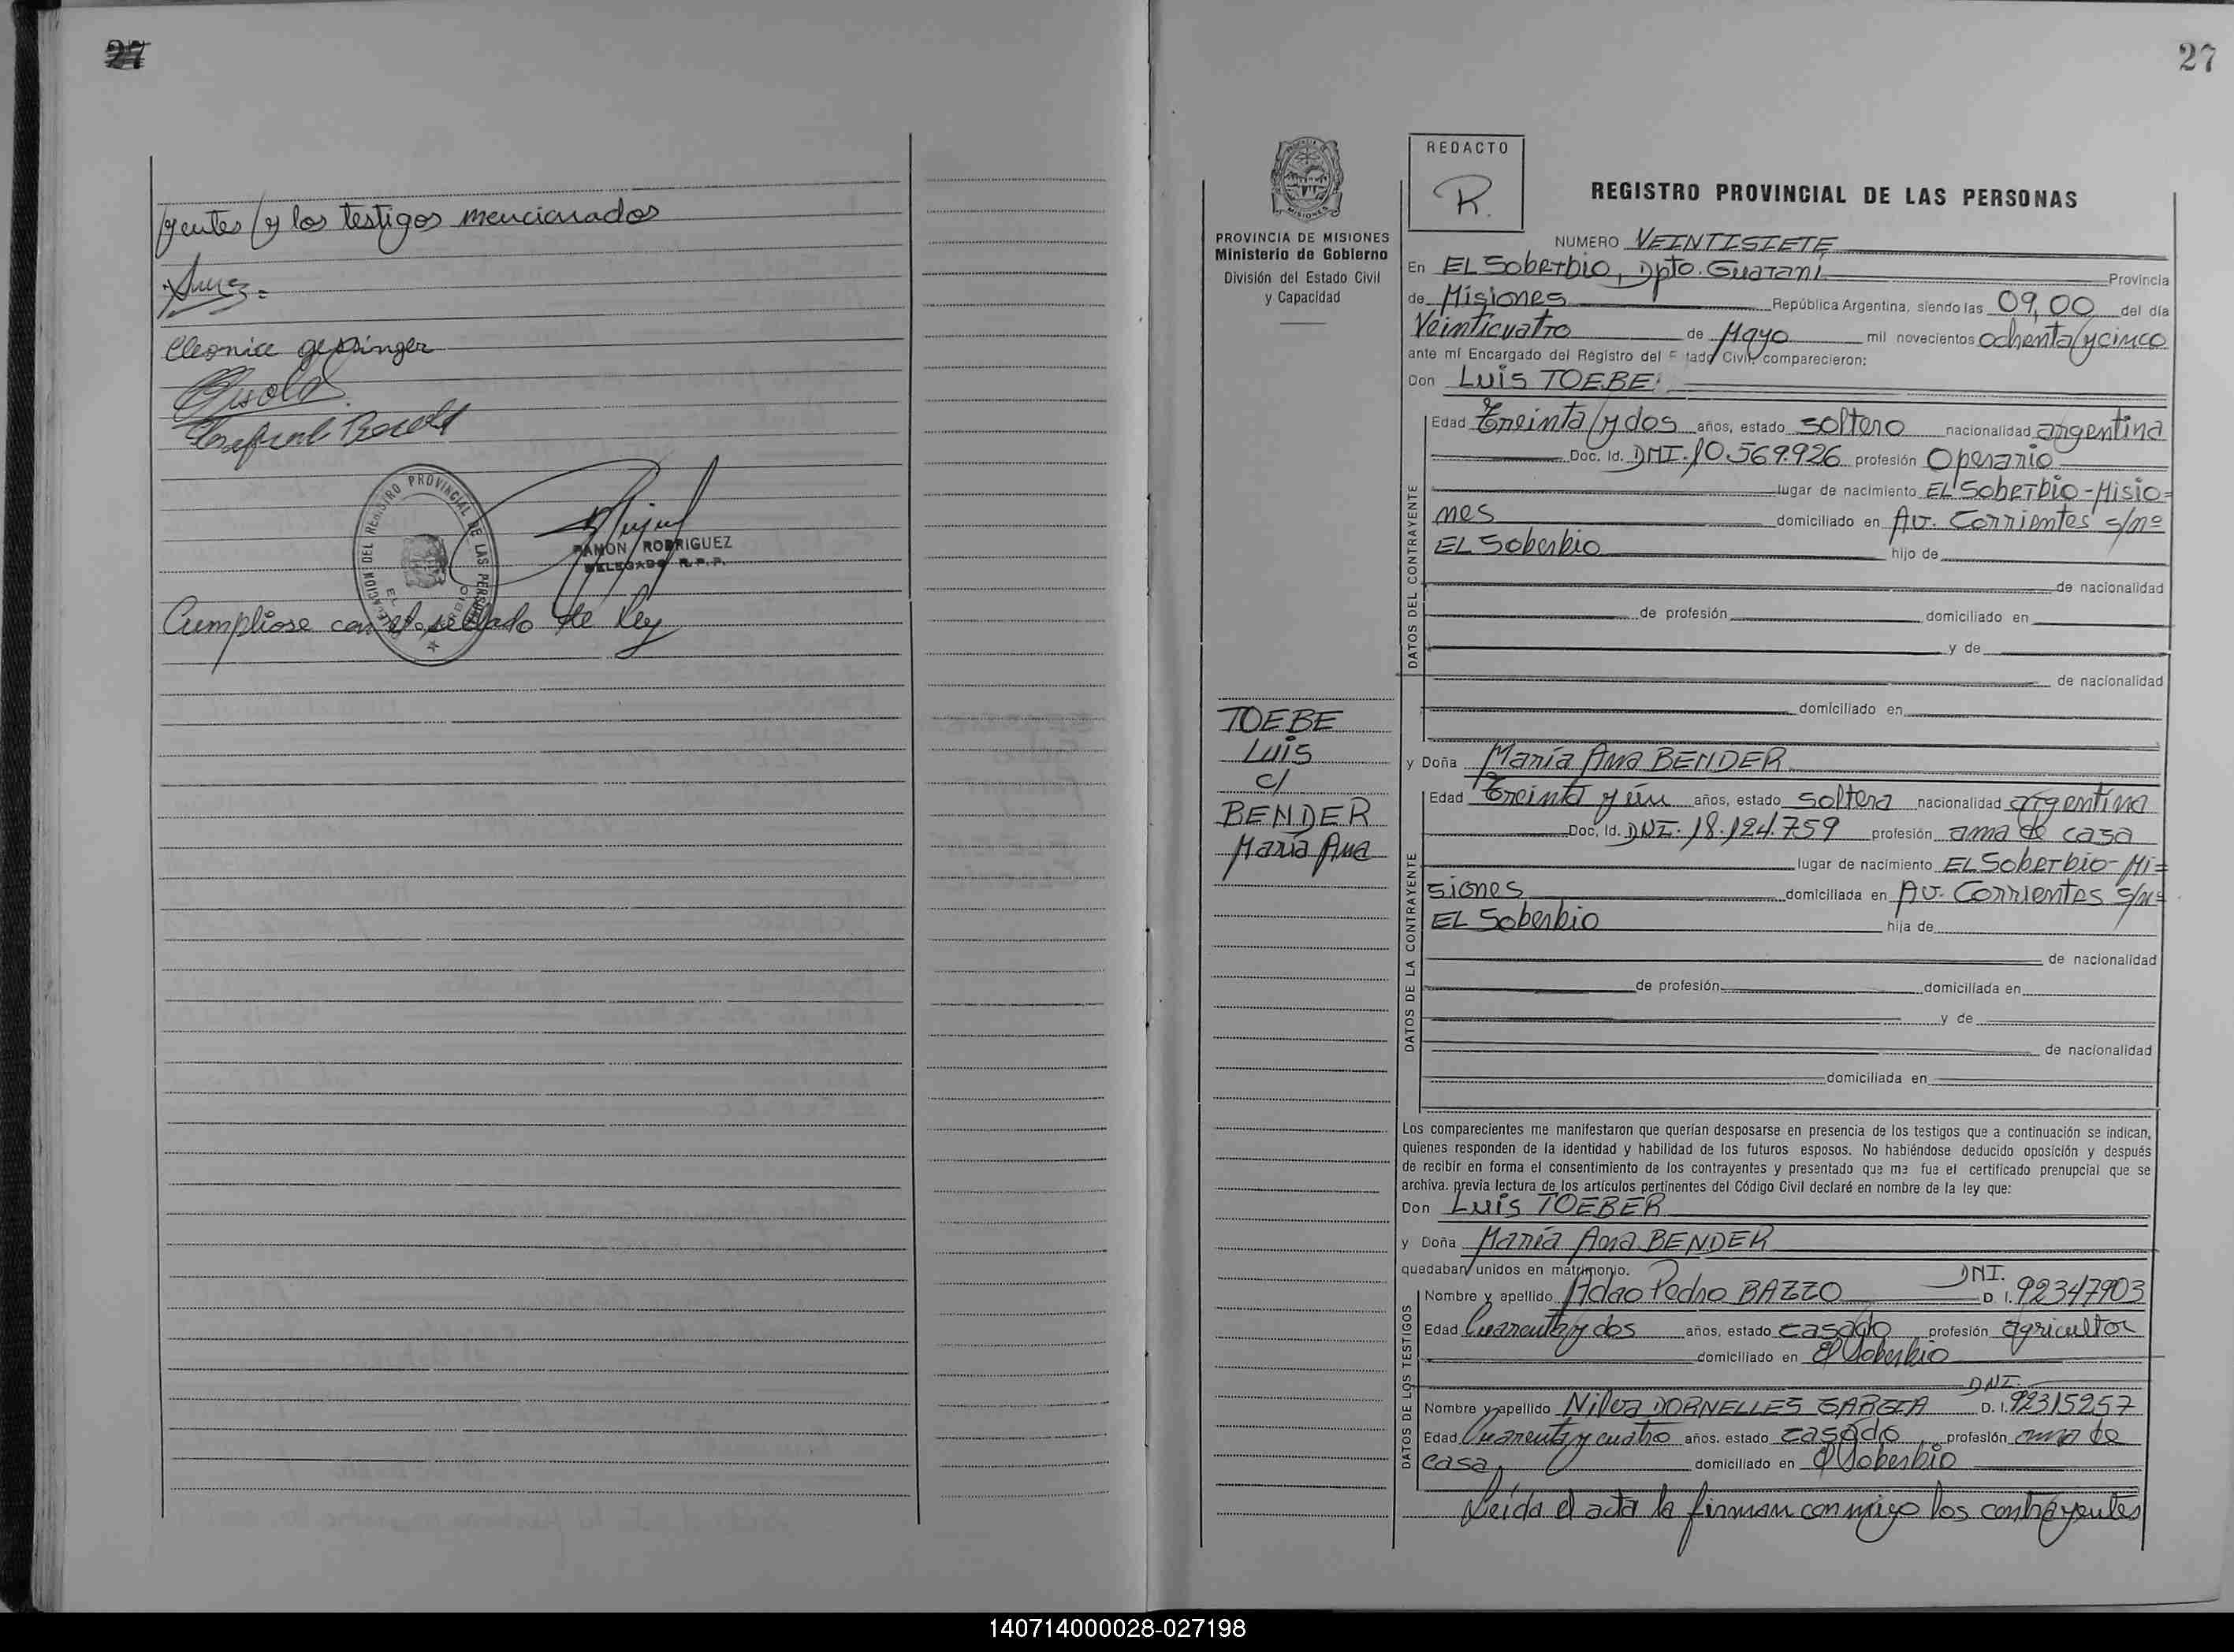 27
yentes y los testigos mencionados
Cleonice gessinger
DELEGACION DEL REGISTRO PROVINCIAL DE LAS PERSONAS
EL
RAMON RODRIGUEZ
DELEGADO R.P.P.
Cumpliose con el sellado de ley
27
PROVINCIA DE MISIONES
Ministerio de Gobierno
División del Estado Civil
y Capacidad
TOEBE
Luis
c/
BENDER
María Ana
REDACTO
R.
REGISTRO PROVINCIAL DE LAS PERSONAS
NUMERO VEINTISIETE
En EL SobeRbio, Dpto. Guaraní Provincia
de Misiones República Argentina, siendo las 09,00 del día
Veinticuatro de Mayo mil novecientos ochenta y cinco
ante mí Encargado del Registro del Estado Civil, comparecieron:
Don Luis TOEBE
DATOS DEL CONTRAYENTE
Edad Treinta y dos años, estado soltero nacionalidad argentina
Doc. Id. DNI. 10.569.926 profesión Operario
lugar de nacimiento EL SobeRbio-Misio=
nes domiciliado en Av. Corrientes s/nº
EL Soberbio hijo de
de nacionalidad
de profesión domiciliado en
y de
de nacionalidad
domiciliado en
y Doña María Ana BENDER
DATOS DE LA CONTRAYENTE
Edad Treinta y ún años, estado soltera nacionalidad argentina
Doc. Id. DNI. 18.124.759 profesión ama de casa
lugar de nacimiento EL SobeRbio-Mi=
siones domiciliada en Av. Corrientes s/nº
EL Soberbio hija de
de nacionalidad
de profesión domiciliada en
y de
de nacionalidad
domiciliada en
Los comparecientes me manifestaron que querían desposarse en presencia de los testigos que a continuación se indican,
quienes responden de la identidad y habilidad de los futuros esposos. No habiéndose deducido oposición y después
de recibir en forma el consentimiento de los contrayentes y presentado que me fue el certificado prenupcial que se
archiva. previa lectura de los artículos pertinentes del Código Civil declaré en nombre de la ley que:
Don Luis TOEBER
y Doña María Ana BENDER
quedaban unidos en matrimonio.
DATOS DE LOS TESTIGOS
Nombre y apellido Adao Pedro BAZZO DNI. D. I. 92347903
Edad Cuarenta y dos años, estado casado profesión agricultor
domiciliado en El Soberbio
Nombre y apellido Nilva DORNELLES GARCIA DNI. D. I. 92315257
Edad Cuarenta y cuatro años. estado casado profesión ama de
casa domiciliado en El Soberbio
Leída el acta la firman conmigo los contrayentes
140714000028-027198